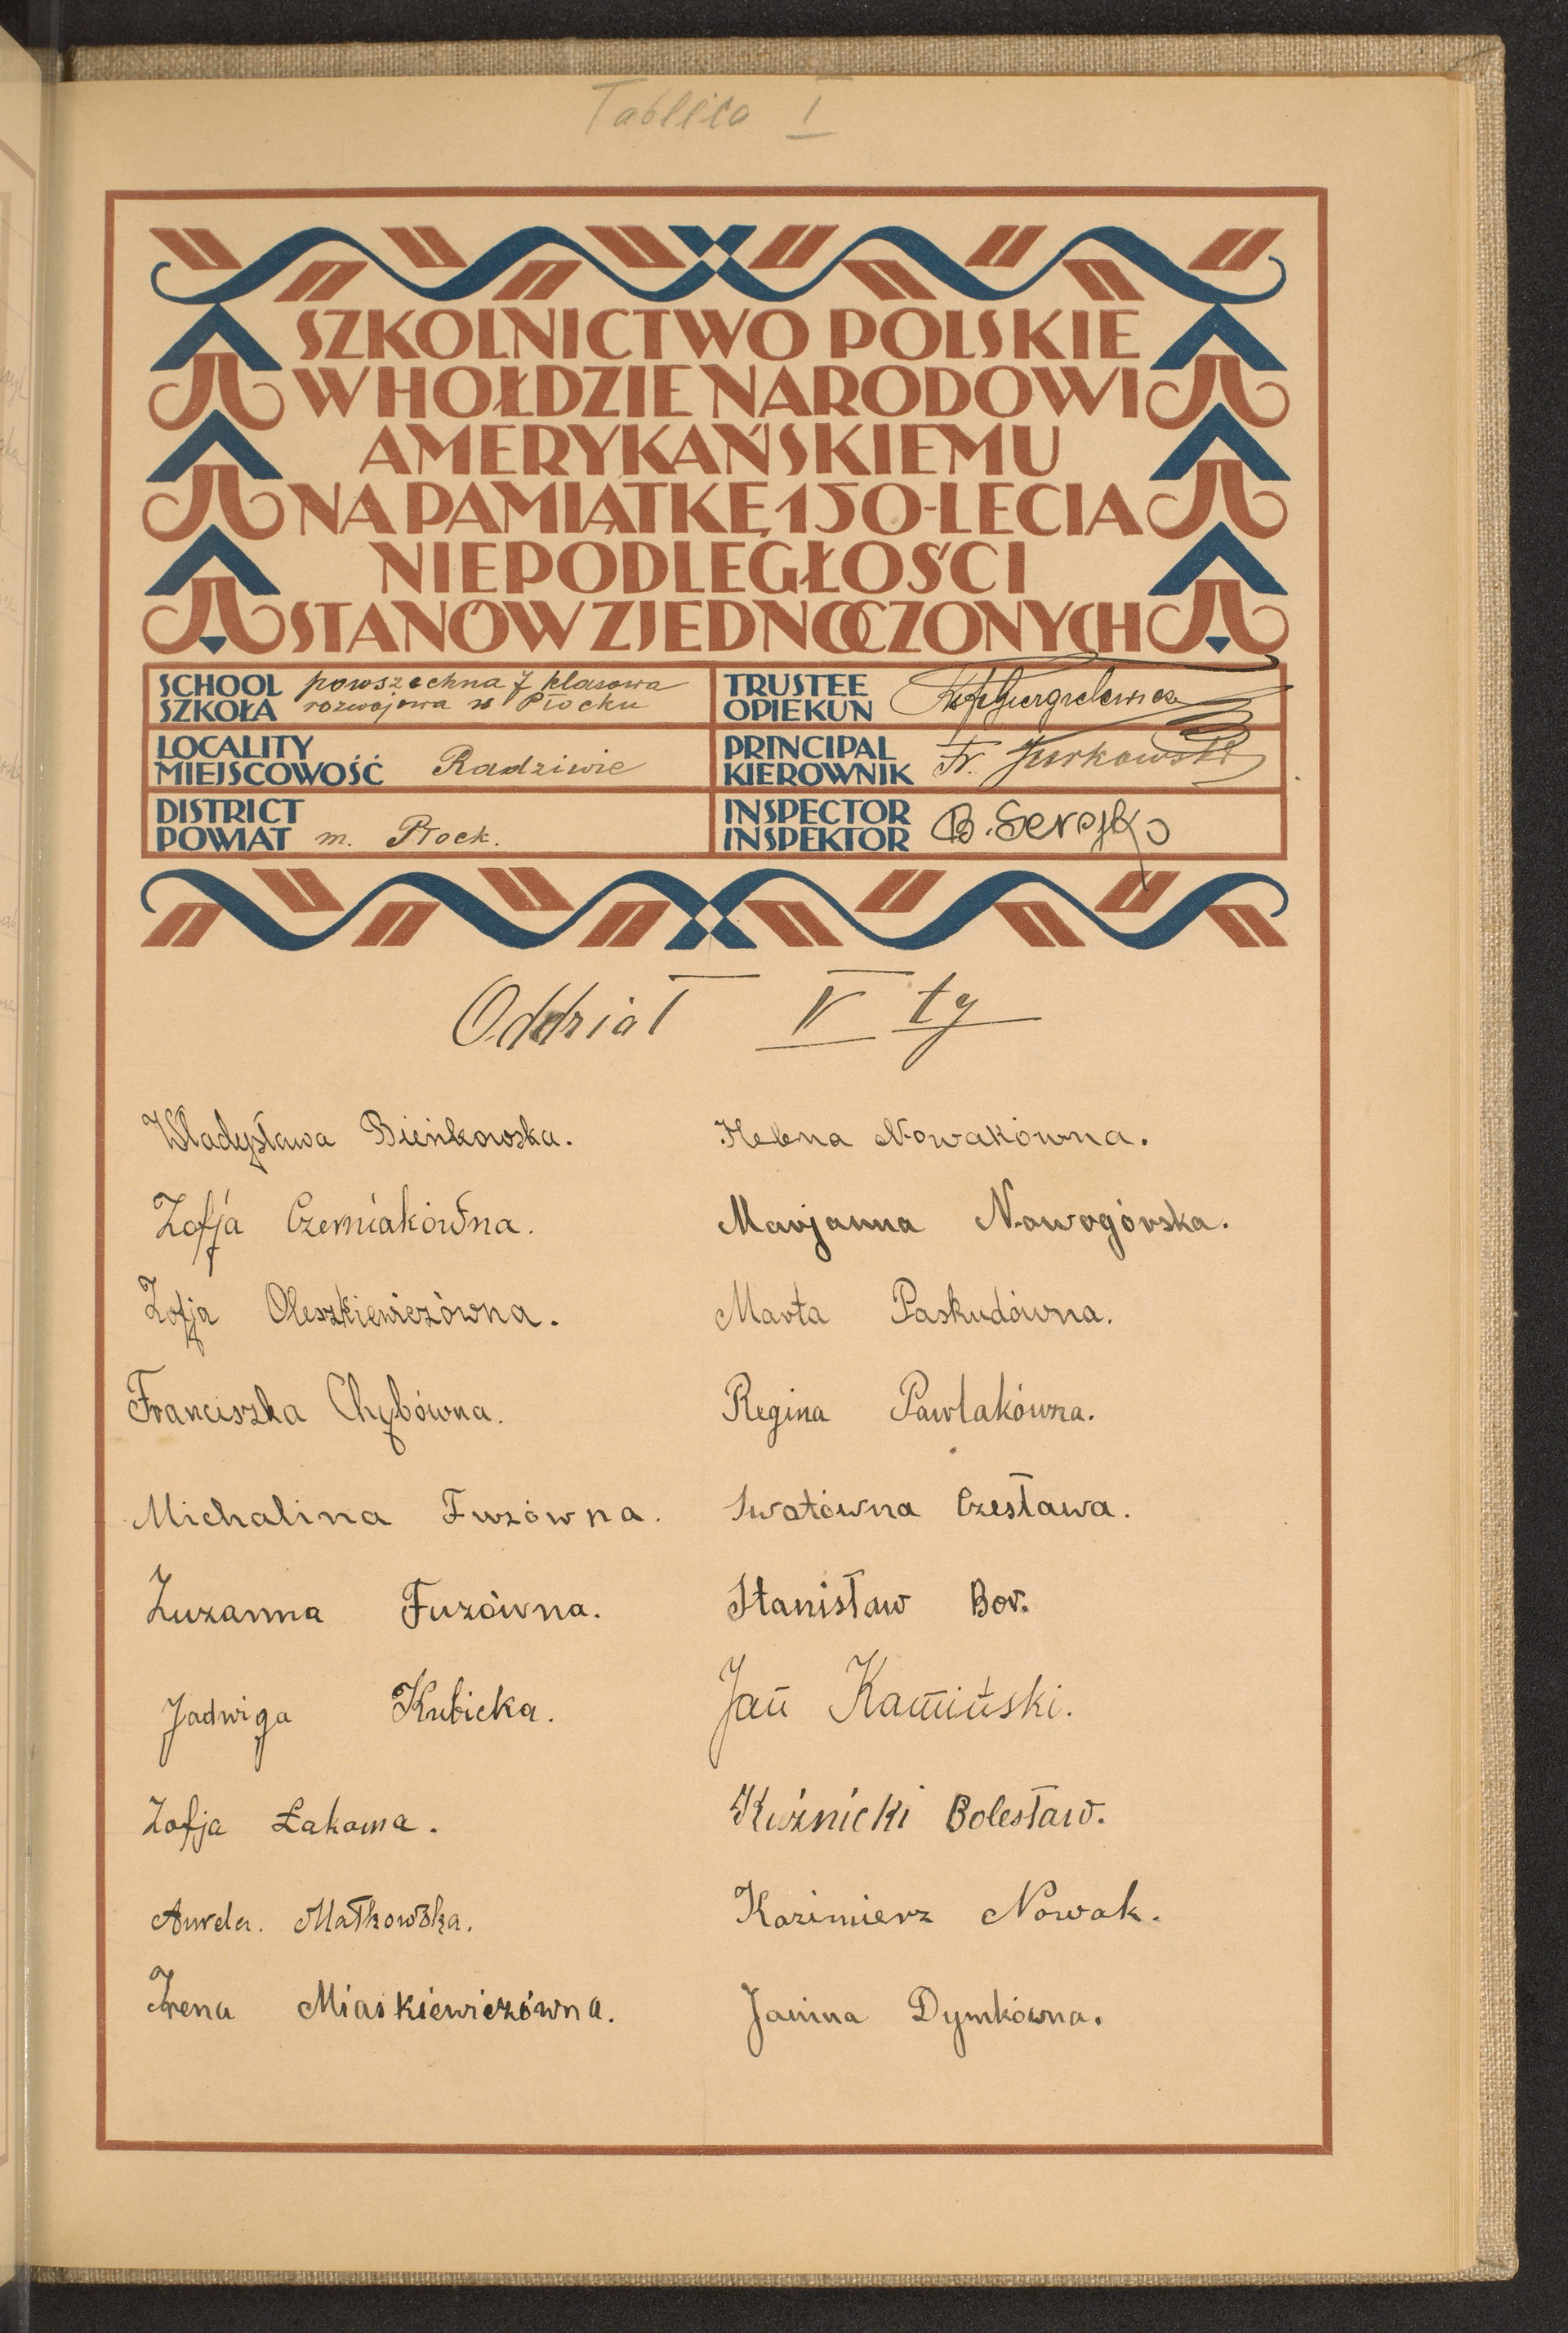 Tablica I
SZKOLNICTWO POLSKIE
W HOŁDZIE NARODOWI
AMERYKAŃSKIEMU
NA PAMIĄTKĘ 150-LECIA
NIEPODLEGŁOŚCI
STANÓW ZJEDNOCZONYCH
SCHOOL
SZKOŁA
powszechna 7 klasowa
rozwojowa w Płocku
TRUSTEE
OPIEKUN
LOCALITY
MIEJSCOWOŚĆ
Radziwie
PRINCIPAL
KIEROWNIK
Fr. Jurkowski
DISTRICT
POWIAT
m. Płock.
INSPECTOR
INSPEKTOR
B.
Oddział V ty
Władysława Bieńkowska.
Zofja Czerniakówna.
Zofja Oleszkiewiczówna.
Franciszka Chybówna.
Michalina Fuzówna.
Zuzanna Fuzówna.
Jadwiga Kubicka.
Zofja Łakoma.
Małkowska.
Irena Miaskiewiczówna.
Helena Nowakówna.
Marjanna Nowogórska.
Marta Paskudówna.
Regina Pawlakówna.
Swatówna Czesława.
Stanisław Bor.
Jan Kamiński.
Kuźnicki Bolesław.
Kazimierz Nowak.
Janina Dymkówna.